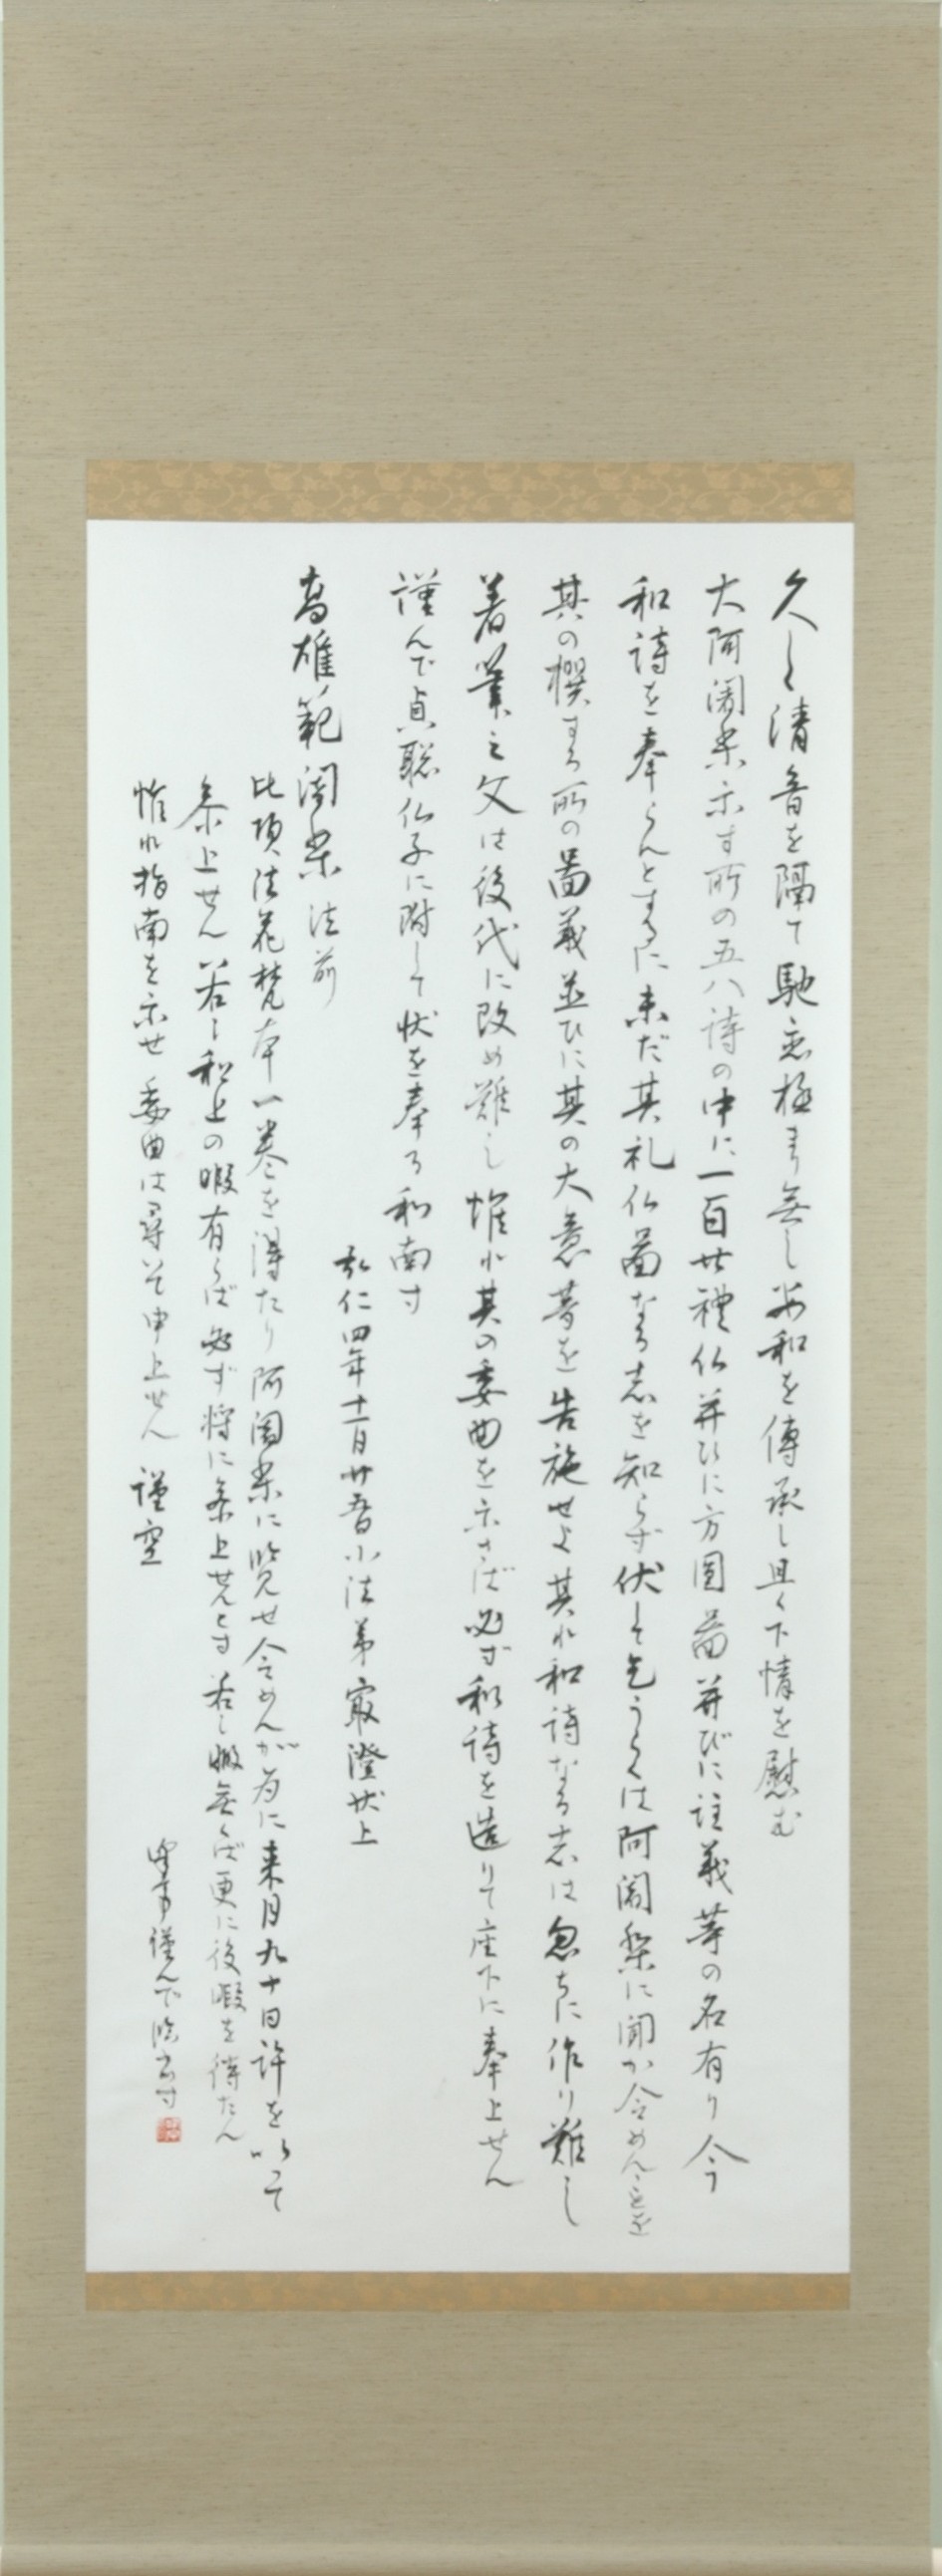 久しく清音を隔て馳恋極まり無し安和を傳承し且く下情を慰む
大阿闍梨示す所の五八詩の中に一百廿禮仏并びに方圓啚并びに註義等の名有り今
和詩を奉らんとするに未だ其礼仏啚なる志を知らず伏して乞うらくは阿闍梨に聞か令めんことを
其の撰する所の啚義並びに其の大意等を告施せよ其れ和詩なる志は忽ちに作り難し
著筆之文は後代に改め難し惟れ其の委曲を示さば必ず和詩を造りて座下に奉上せん
謹んで貞聡仏子に附して状を奉る和南す
弘仁四年十一月廿五日小法弟最澄状上
高雄範闍梨法前
比頃法花梵本一巻を得たり阿闍梨に覧せ令めんが為に来月九十日許を以って
参上せん若し和上の暇有らば必ず将に参上せんとす若し暇無くば更に後暇を待たん
惟れ指南を示せ委曲は尋いで申上せん 謹空
謹んで臨書す